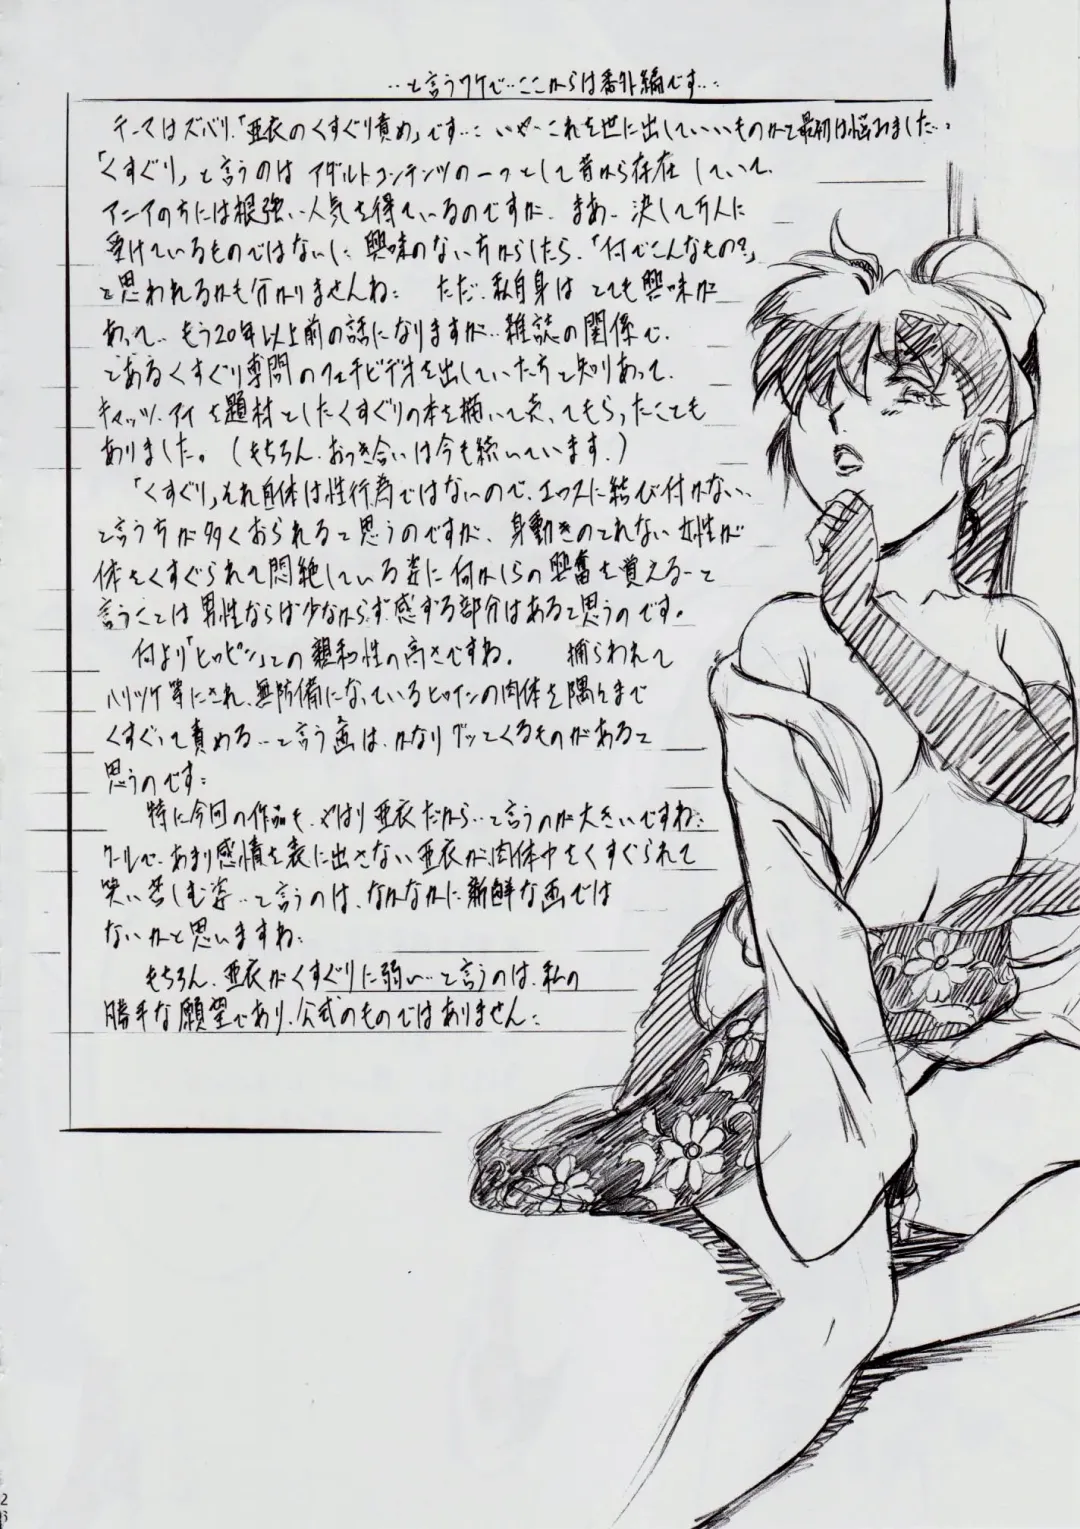 ‥と言うワケで‥ここからは番外編です‥:
テーマはズバリ、「亜衣のくすぐり責め」です‥: いやーこれを世に出していいものかと最初は悩みました‥:
「くすぐり」と言うのは アダルトコンテンツの一つとして昔から存在していて、
マニアの方には根強い人気を得ているのですが、まあー 決して万人に
受けているものではないし: 興味のない方からしたら、「何でこんなもの?」
と思われるかも分かりませんね: ただ、私自身は とても興味が
あって‥もう20年以上前の話になりますが‥雑誌の関係で、
とあるくすぐり専門のフェチビデオを出していた方と知りあって、
キャッツ・アイを題材としたくすぐりの本を描いて売ってもらったことも
ありました。(もちろん、おつき合いは今も続いています。)
「くすぐり」それ自体は性行為ではないので、エロスに結び付かない、
と言う方が多くおられると思うのですが、身動きのとれない女性が
体をくすぐられて悶絶している姿に何かしらの興奮を覚える‥と
言うことは男性ならば少なからず感ずる部分はあると思うのです。
何より「ヒロピン」との親和性の高さですね。 捕らわれて
ハリツケ等にされ、無防備になっているヒロインの肉体を隅々まで
くすぐって責める‥と言う画は、かなりグッとくるものがあると
思うのです:
特に今回の作品も、やはり亜衣だから‥と言うのが大きいですね:
クールで、あまり感情を表に出さない亜衣が肉体中をくすぐられて
笑い苦しむ姿‥と言うのは、なかなかに新鮮な画では
ないかと思いますね:
もちろん、亜衣がくすぐりに弱い‥と言うのは、私の
勝手な願望であり、公式のものではありません:
23